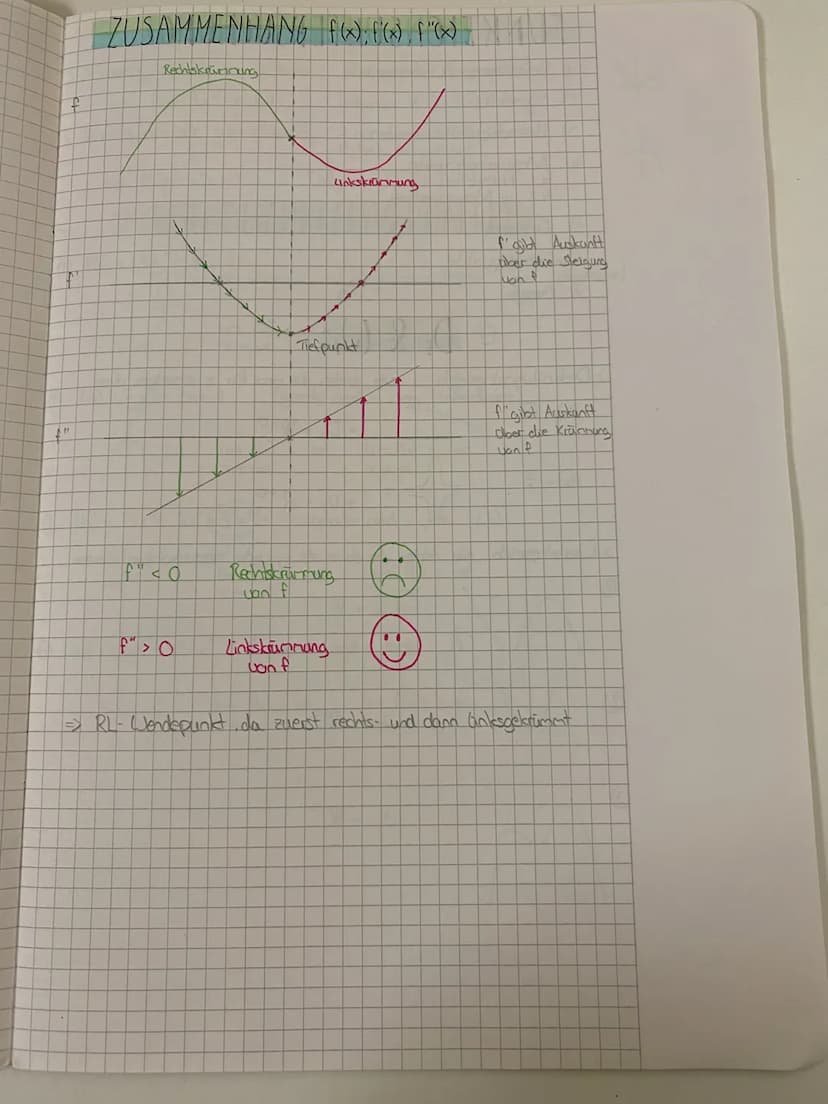 ZUSAMMENHANG f(x); f'(x); f"(x)
Rechtskrümmung
f
Linkskrümmung
f'gibt Auskunft
über die Steigung
von f
f'
Tiefpunkt
f"gibt Auskunft
über die Krümmung
von f
f"
f" < 0 Rechtskrümmung
von f
f" > 0 Linkskrümmung
von f
⇒ RL-Wendepunkt, da zuerst rechts- und dann linksgekrümmt